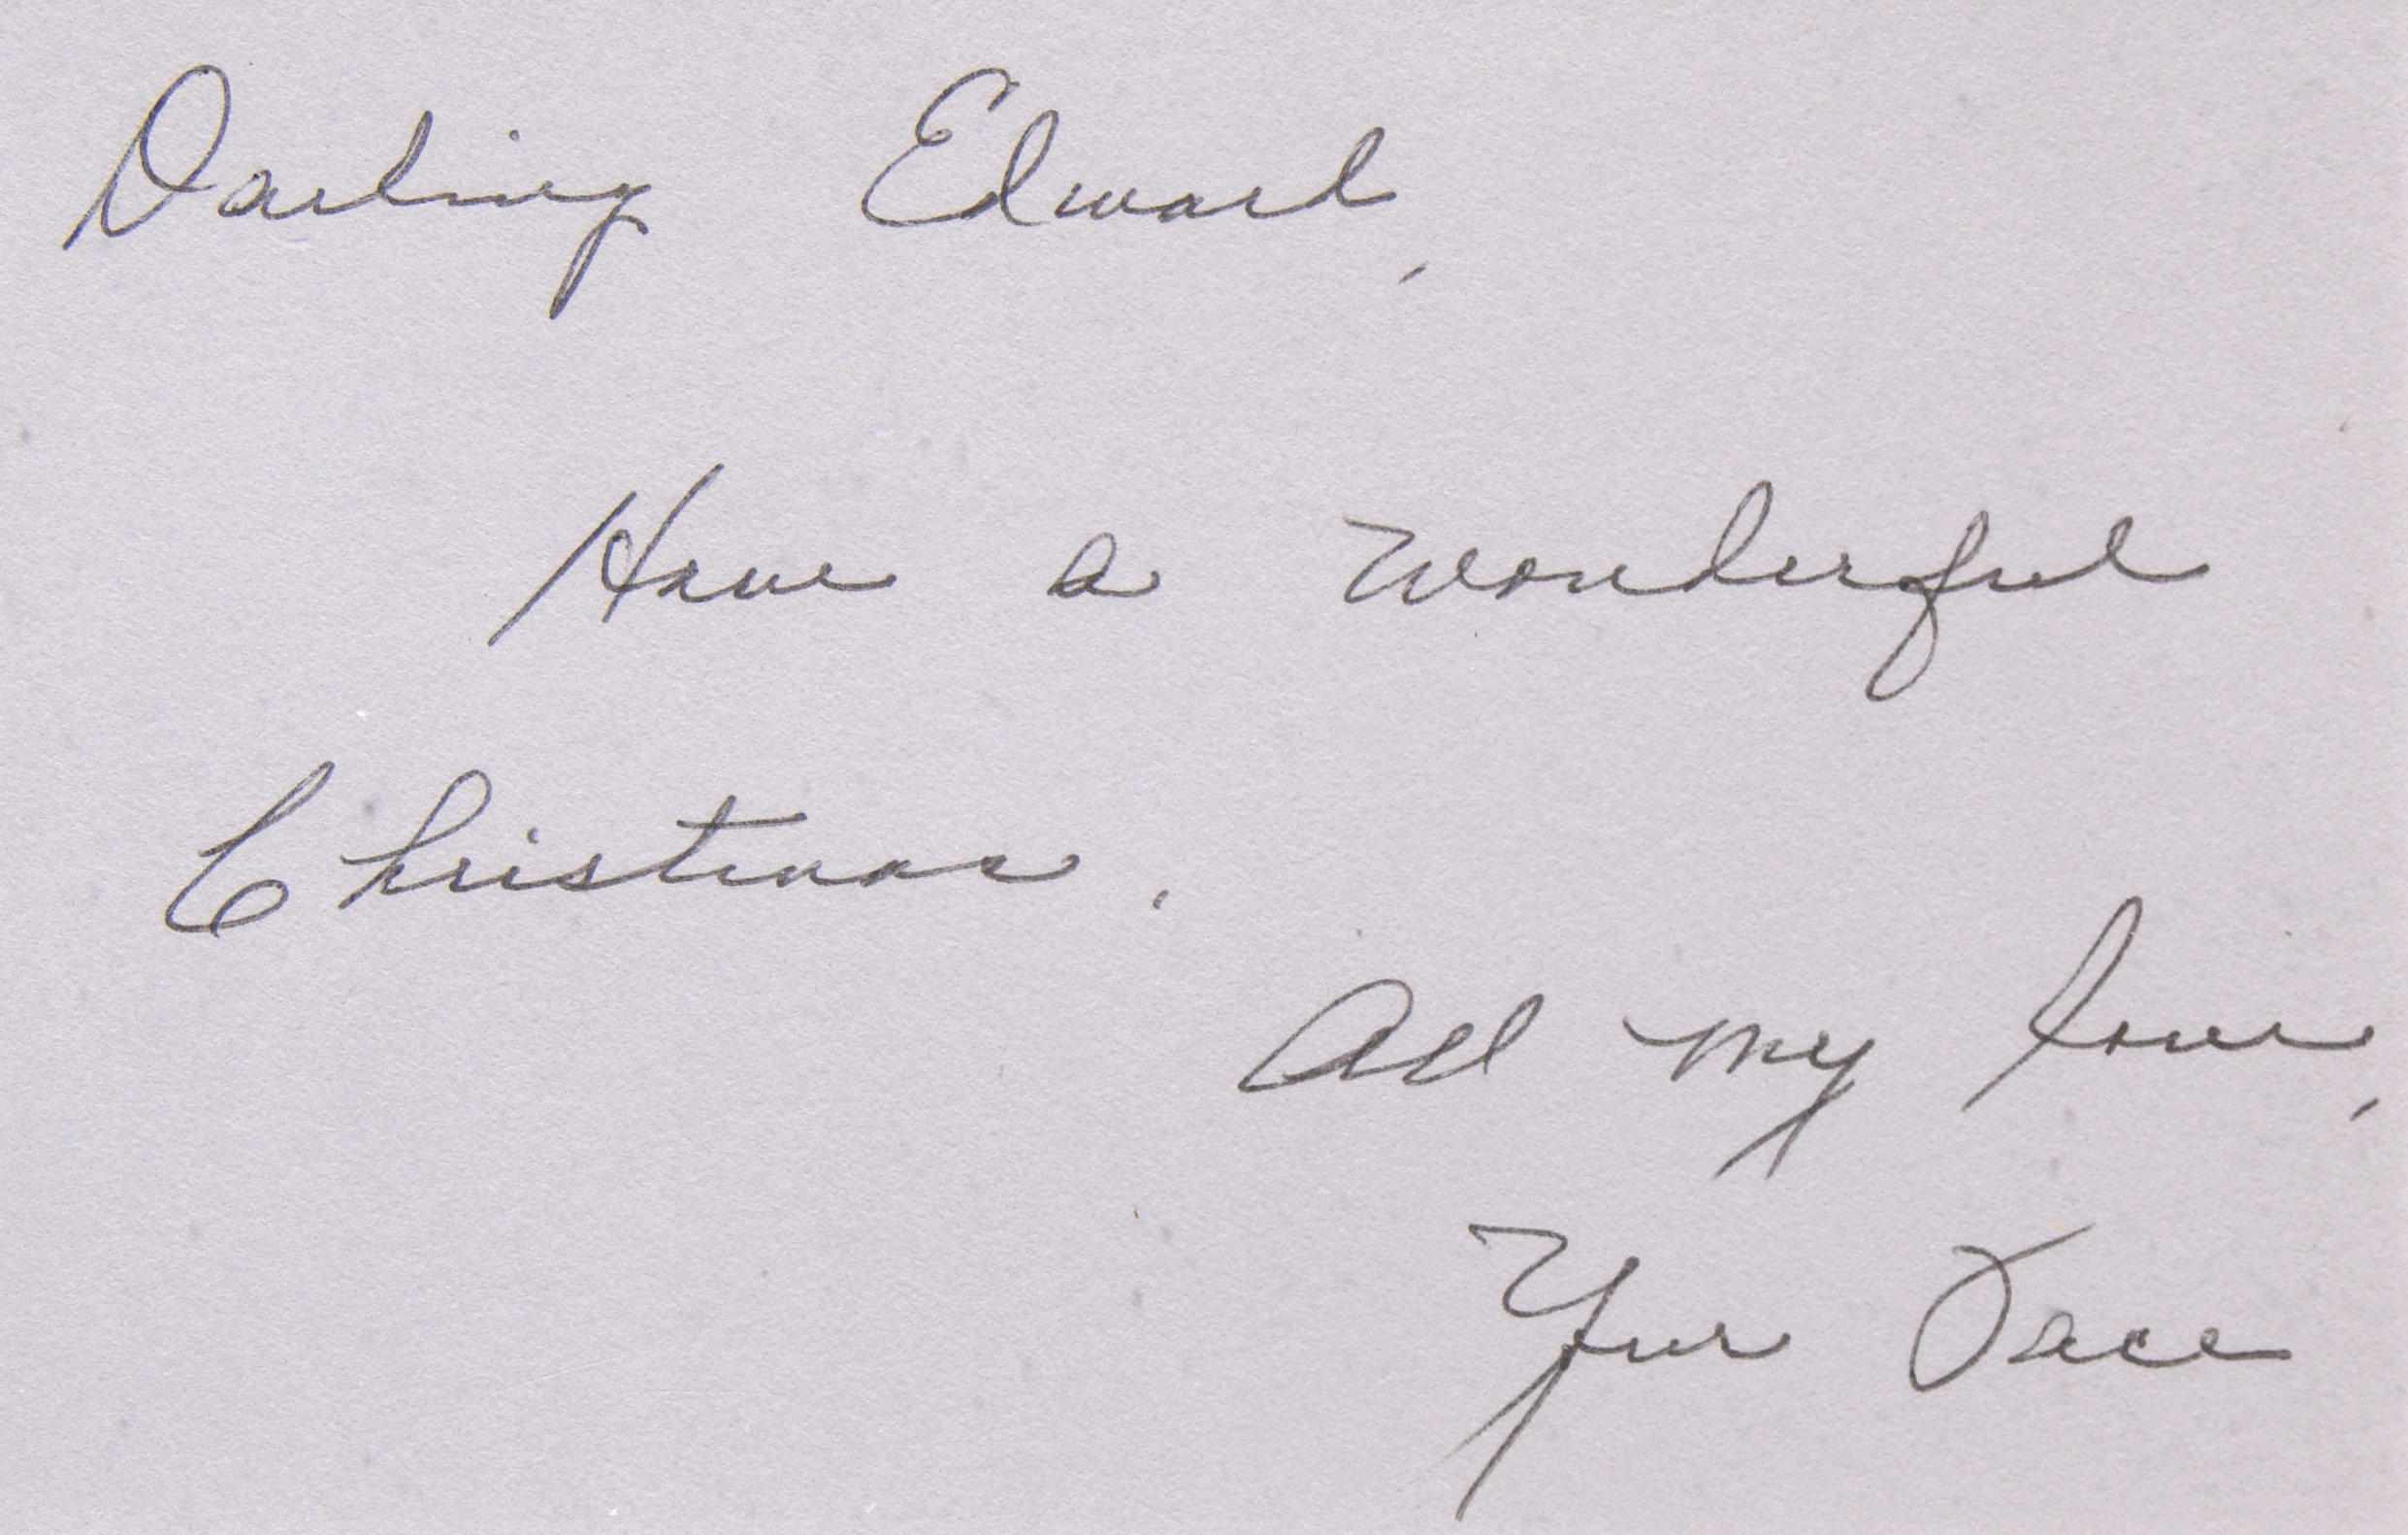 Darling Edward,
Have a wonderful
Christmas.
All my love,
Your